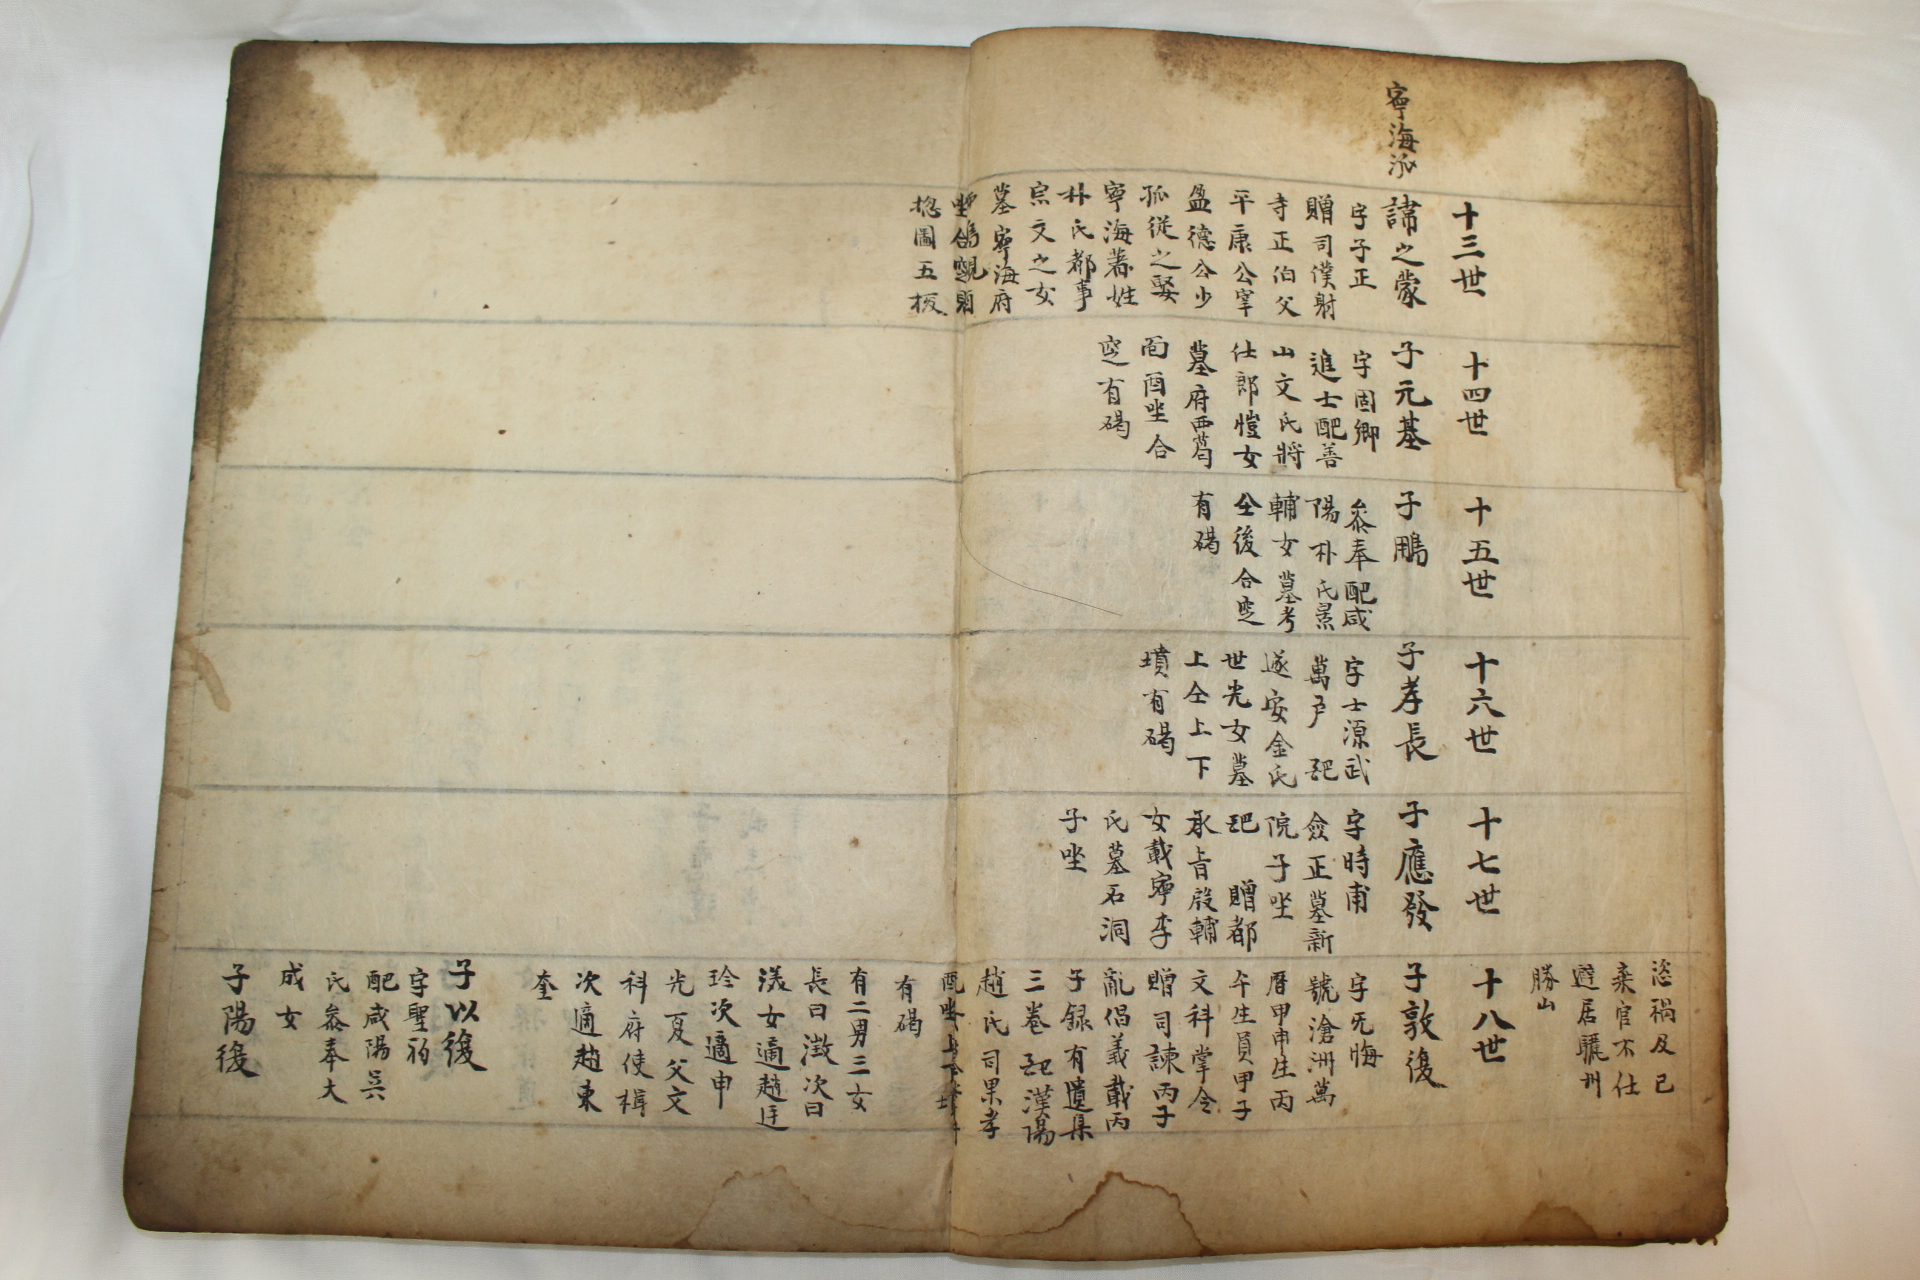 寧海派
十三世
諱之蒙
字子正
贈司僕射
寺正伯父
平康公宰
盈德公少
孤從之娶
寧海著姓
朴氏都事
宗文之女
墓寧海府
摠圖五板
十四世
子元基
字固卿
進士配善
山文氏將
仕郎愷女
墓府西
面酉坐合
窆有碣
十五世
子鵬
叅奉配咸
陽朴氏景
輔女墓考
仝後合窆
有碣
十六世
子孝長
字士源武
萬戶 配
遂安金氏
世光女墓
上仝上下
墳有碣
十七世
子應發
字時甫
僉正墓新
院子坐
配 贈都
承旨殷輔
女載寧李
氏墓石洞
子坐
恣禍及已
棄官不仕
避居驪州
勝山
十八世
子敦復
字无悔
號滄洲萬
曆甲申生丙
午生員甲子
文科掌令
贈司諫丙子
亂倡義載丙
子錄有遺集
三卷 配漢陽
趙氏司果孝
有碣
有二男三女
長曰澂次曰
漾女適趙廷
玲次適申
光夏父文
科府使楫
次適趙東
奎
子以復
字聖初
配咸陽吳
氏叅奉大
成女
子陽復